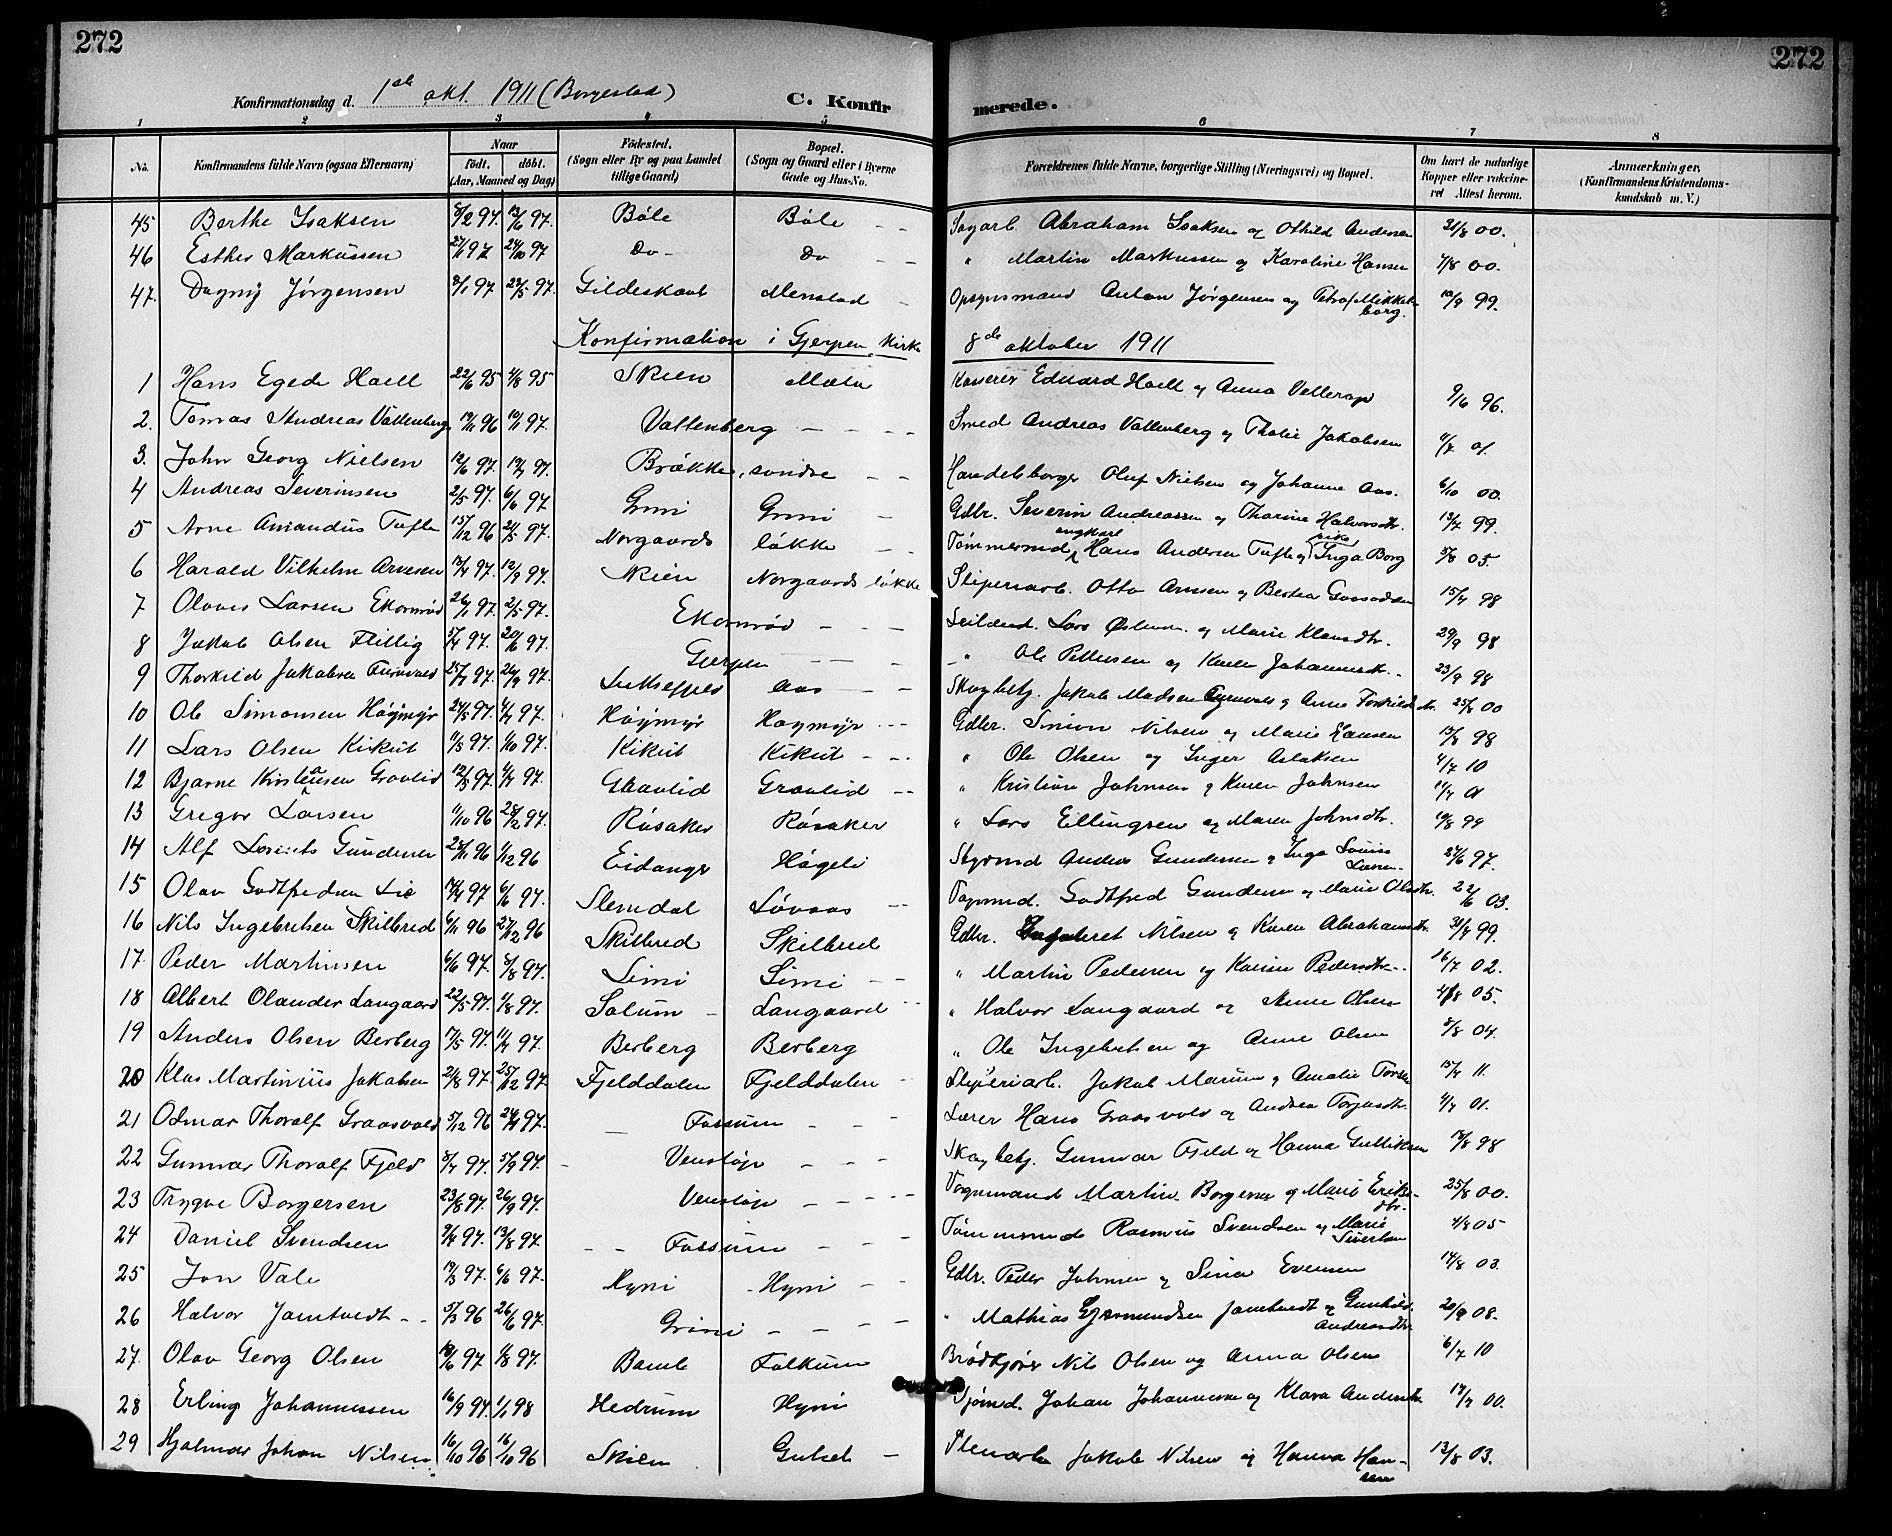 272
272
Konfirmationsdag d. 1ste okt. 1911 (Borgestad)
C. Konfirmerede.
1 2 3 4 5 6 7 8
No. Konfirmandens fulde Navn (ogsaa Efternavn) Naar født. døbt. (Aar, Maaned og Dag) Födested. (Sogn eller By og paa Landet tillige Gaard) Bopæl. (Sogn og Gaard eller i Byerne Gade og Hus-No. Forældrenes fulde Navne, borgerlige Stilling (Næringsvei) og Bopæl. Om havt de naturlige Kopper eller vakcineret Attest herom. Anmærkninger. (Konfirmandens Kristendomskundskab m. V.)
45 Berthe Isaksen 8/2 97. 13/6 97. Bøle Bøle - - Sagarb. Abraham Isaksen og Othild Andersen 31/8 00.
46 Esther Markussen 27/1 97 24/10 97 Do - Do - - " Martin Markussen og Karoline Hansen 7/8 00.
47. Dagny Jørgensen 2/1 97 23/5 97. Gildeskaal Menstad - Opsynsmand Anton Jørgensen og Petra Mikkelborg. 19/9 99.
Konfirmation i Gjerpen Kirke 8de oktober 1911
1 Hans Egede Hoell 22/6 95 4/8 95 Skien Mæla Kasserer Edvard Hoell og Anna Vellerop 9/6 96.
2. Tomas Andreas Vattenberg 19/11 96 10/1 97. Vattenberg - - - - Smed Andreas Vattenberg og Thalie Jakobsen 4/7 01.
3. John Georg Nielsen 12/6 97. 19/9 97. Brække, søndre - - Handelsborger Oluf Nielsen og Johanne Aas. 6/10 00.
4 Andreas Severinsen 2/5 97. 6/6 97 Grini Grini - Gdbr. Severin Andreassen og Thorine Halvorsdtr. 13/7 99.
5 Arne Amandus Tufte 15/12 96 24/5 97. Norgaards løkke - Tømmermd. ungkarl Hans Andersen Tufte og pike Inga Borg 3/8 05.
6 Harald Vilhelm Arnesen 13/4 97. 12/9 97. Skien Norgaards løkke Sliperiarb. Otto Arnesen og Bertea 15/4 98
7 Olaves Larsen Ekornrød 26/1 97. 2/5 97. Ekornrød - - - Leilænd. Lars og Marie Klausdtr. 29/9 98
8 Jakob Olsen Flittig 5/4 97. 20/6 97. Gjerpen - - - - " Ole Pettersen og Karen Johannesdtr. 23/9 98
9 Thorkild Jakobsen 25/7 97. 26/9 97. Luksefjeld Aas - - Skogbetj. Jakob Madsen og Anne Torkildsdtr. 25/8 00
10 Ole Simonsen Høgmyr 24/5 97. 4/7 97. Høgmyr Høgmyr - - - Gdbr. Simon Nilsen og Maria Hansen 13/8 98
11 Lars Olsen Kikut 11/5 97. 1/10 97. Kikut Kikut - - - " Ole Olsen og Inger Aslaksen 4/7 10
12 Bjarne Kristiansen Gravlid 12/3 97. 4/7 97. Gravlid Gravlid - - " Kristian Johnsen og Karen Johnsen 11/7 01
13 Gregor Larsen 11/10 96 28/2 97. Røsaker Røsaker " Lars Ellingsen og Maren Johnsdtr. 19/8 99
14 Alf Lorents Gundersen 25/11 96 1/12 96 Eidanger Høgeli Styrmd Anders Gundersen og Inga Lovise Larsen 27/6 97.
15 Olav Godtfredsen Lie 19/4 97 6/6 97. Slemdal Løvaas - - Vognmd. Godtfred Gundersen og Marie Olsdtr. 22/6 03.
16 Nils Ingebretsen Skilbred 6/11 96 27/12 96 Skilbred Skilbred Gdbr. Ingebret Nilsen og Karen Abrahamsdtr. 31/7 99.
17. Peder Martinsen 6/6 97. 8/8 97. Limi Limi - - " Martin Pedersen og Karen Pedersdtr. - 16/7 02.
18 Albert Olander Langaard 22/5 97. 1/8 97. Solum - Langaard - - " Halvor Langaard og Anne Olsen 4/8 05.
19 Anders Olsen Berberg 17/5 97. 11/7 97. Berberg Berberg " Ole Ingebretsen og Anne Olsen 5/8 04.
20 Klas Martinius Jakobsen 21/8 97. 25/12 97. Fjelddalen Fjelddalen - Sliperiarb. Jakob og Amalie 15/7 11.
21 Odmar Thoralf Graasvold 5/12 96 24/4 97. - Fossum - - - Lærer Hans Graasvold og Andrea Torjusdtr. 4/7 01.
22 Gunnar Thoralf Fjeld 5/7 97. 5/9 97. - Venstøp - - - Skogbetj. Gunnar Fjeld og Hanna Gulliksen 17/8 98
23 Trygve Borgersen 23/6 97. 26/9 97. Venstøp - - - - Vognmand Martin Borgersen og Maria Eriksdtr. 25/8 00.
24 Daniel Svendsen 9/4 97. 13/8 97. - - Fossum - - - Tømmermd. Rasmus Svendsen og Marie Sivertsen 4/8 05
25 Jon Vale 19/3 97. 6/6 97. Hyni Hyni - - Gdbr. Peder Johnsen og Sina Evensen 14/8 03.
26 Halvor Jamtvedt - - 5/3 96 26/6 97. Grini - - - - " Mathias Gjermundsen Jamtvedt og Gunhild Andreasdtr. 20/9 08.
27. Olav Georg Olsen 18/6 97 1/8 97. Bamle Falkum Brødkjører Nils Olsen og Anna Olsen 6/7 10
28 Erling Johannessen 16/9 97. 1/1 98 Hedrum Hyni Sjømd. Johan Johannessen og Klara Andersdtr. 14/7 00.
29 Hjalmar Johan Nilsen 16/10 96 16/10 96 Skien Gulset - Stenarb. Jakob Nilsen og Hanna Hansen 13/8 03.